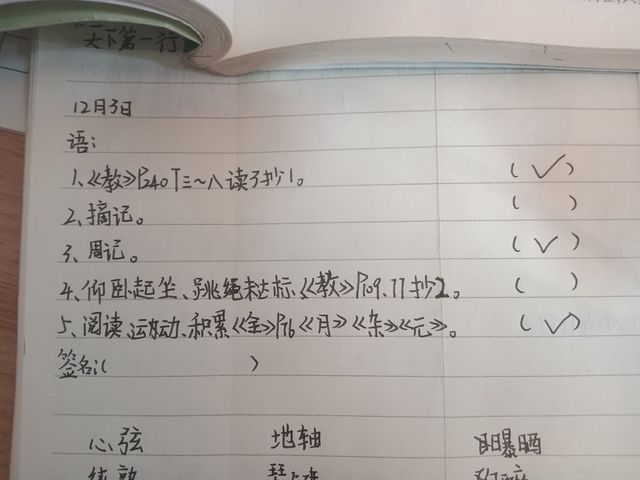 天下第一行
12月3日
语:
1、《教》P240 T三~八读3抄1。 (✓)
2、摘记。 ( )
3、周记。 (✓)
4、仰卧起坐、跳绳未达标、《教》P109.T1抄2。 ( )
5、阅读、运动、积累《全》P76《月》《杂》《元》。 (✓)
签名:( )
心弦 地轴 曝晒
练熟